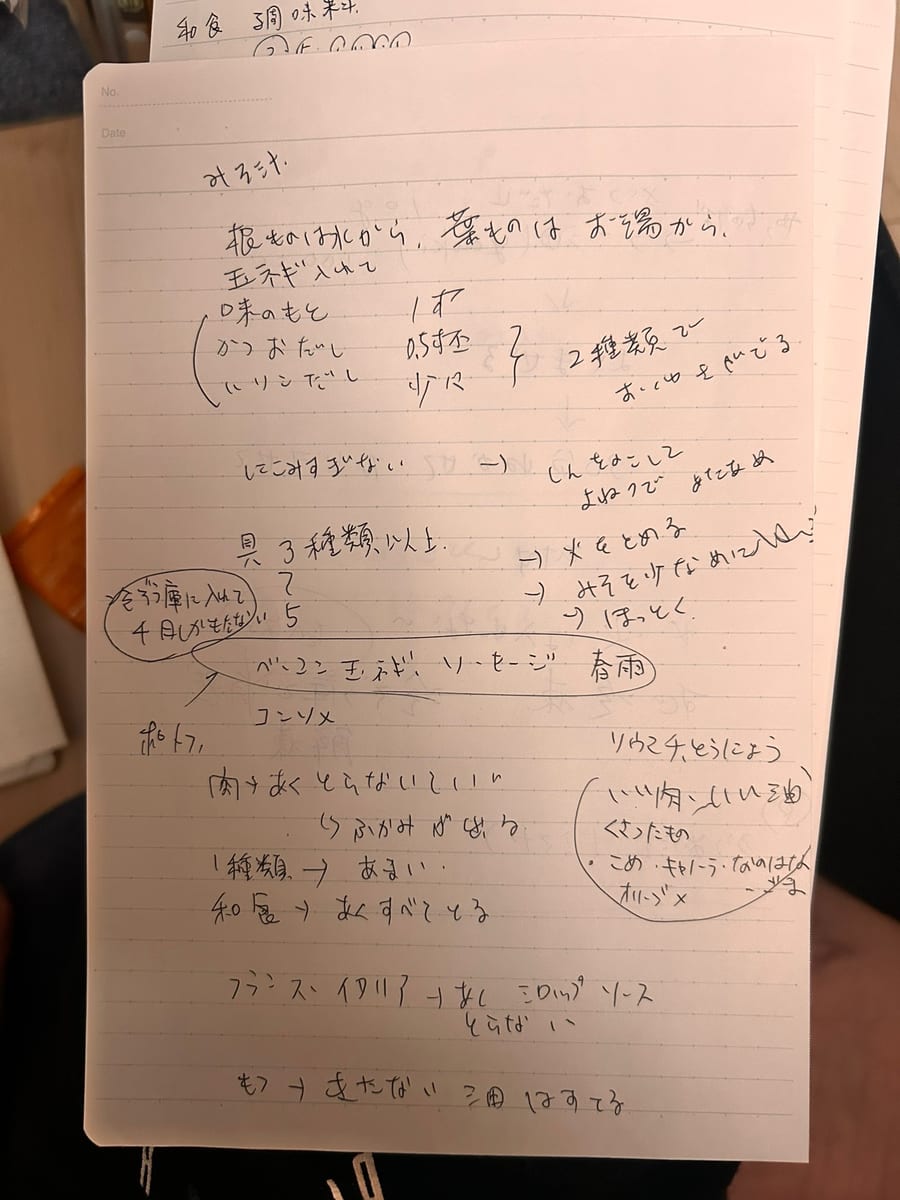 和食 調味料
No.
Date
みそ汁
根ものは水から、葉ものは お湯から、
玉ネギ入れて
味のもと 1才
かつおだし 0.5才
いりこだし 少尺
2種類で
にこみすぎない →
具 3種類以上
7
5
→ 火をとめる
→ みそを少なめに
→ ほっとく
れいぞう庫に入れて
4日しかもたない
ベーコン 玉ネギ、ソーセージ 春雨
コンソメ
ポトフ
肉→あくとらないでいい
↳ ふかみがでる
1種類 → あまい
和食 → あくすべてとる
いい肉、いい油
くさったもの
・こめ・キャノーラ・なのはな
オリーブ× ・ごま
フランス、イタリア → あく シロップ ソース
とらない
もつ → きたない 油はすてる